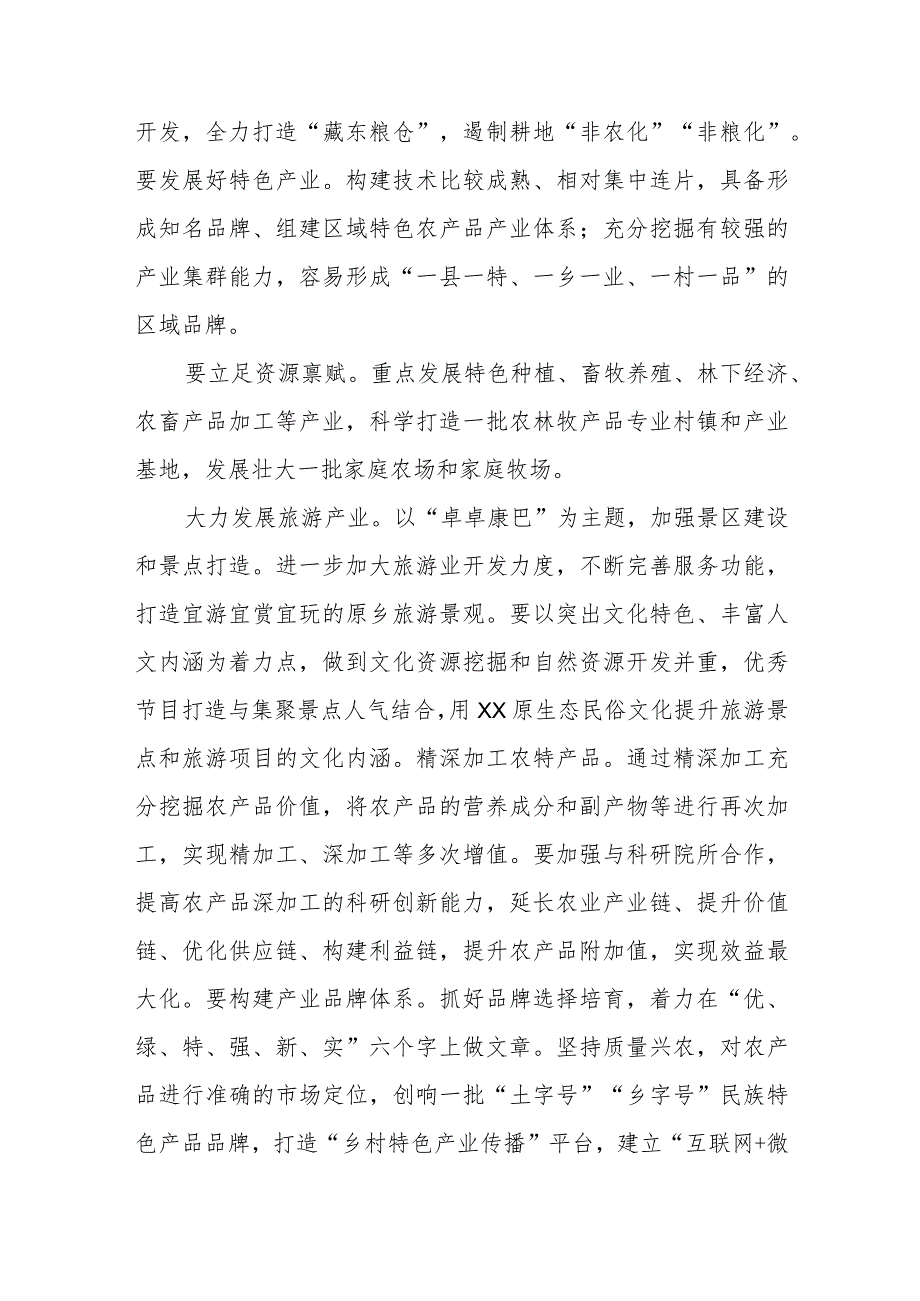 开发，全力打造“藏东粮仓”，遏制耕地“非农化”“非粮化”。
要发展好特色产业。构建技术比较成熟、相对集中连片，具备形
成知名品牌、组建区域特色农产品产业体系；充分挖掘有较强的
产业集群能力，容易形成“一县一特、一乡一业、一村一品”的
区域品牌。
要立足资源禀赋。重点发展特色种植、畜牧养殖、林下经济、
农畜产品加工等产业，科学打造一批农林牧产品专业村镇和产业
基地，发展壮大一批家庭农场和家庭牧场。
大力发展旅游产业。以“卓卓康巴”为主题，加强景区建设
和景点打造。进一步加大旅游业开发力度，不断完善服务功能，
打造宜游宜赏宜玩的原乡旅游景观。要以突出文化特色、丰富人
文内涵为着力点，做到文化资源挖掘和自然资源开发并重，优秀
节目打造与集聚景点人气结合，用 XX 原生态民俗文化提升旅游景
点和旅游项目的文化内涵。精深加工农特产品。通过精深加工充
分挖掘农产品价值，将农产品的营养成分和副产物等进行再次加
工，实现精加工、深加工等多次增值。要加强与科研院所合作，
提高农产品深加工的科研创新能力，延长农业产业链、提升价值
链、优化供应链、构建利益链，提升农产品附加值，实现效益最
大化。要构建产业品牌体系。抓好品牌选择培育，着力在“优、
绿、特、强、新、实”六个字上做文章。坚持质量兴农，对农产
品进行准确的市场定位，创响一批“土字号”“乡字号”民族特
色产品品牌，打造“乡村特色产业传播”平台，建立“互联网+微